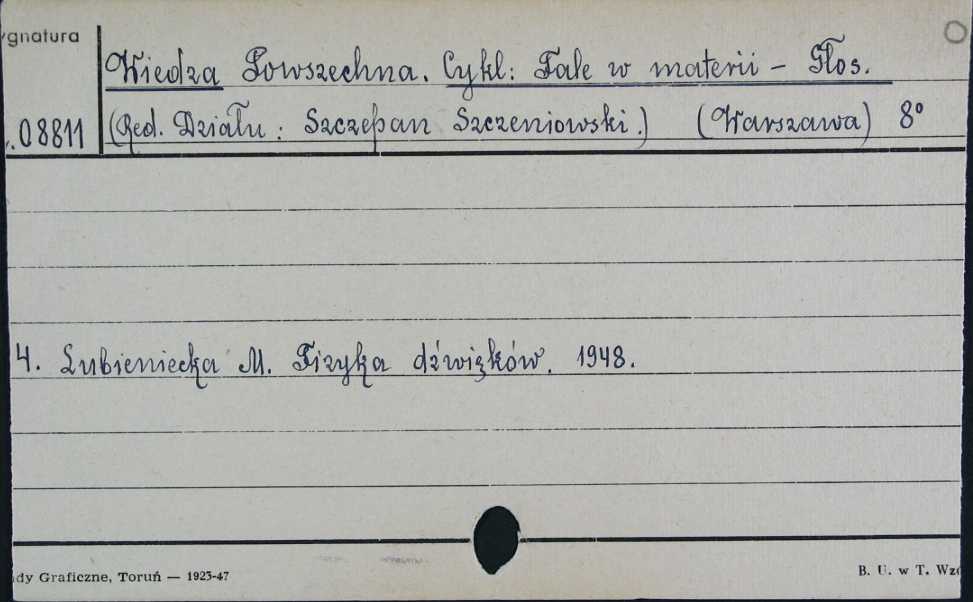 ygnatura
Wiedza Powszechna. Cykl: Fale w materii – Głos.
.08811 (Red. Działu: Szczepan Szczeniowski.) (Warszawa) 8°
4. Łubieniecka M. Fizyka dźwięków. 1948.
dy Graficzne, Toruń — 1923-47
B. U. w T. Wzó